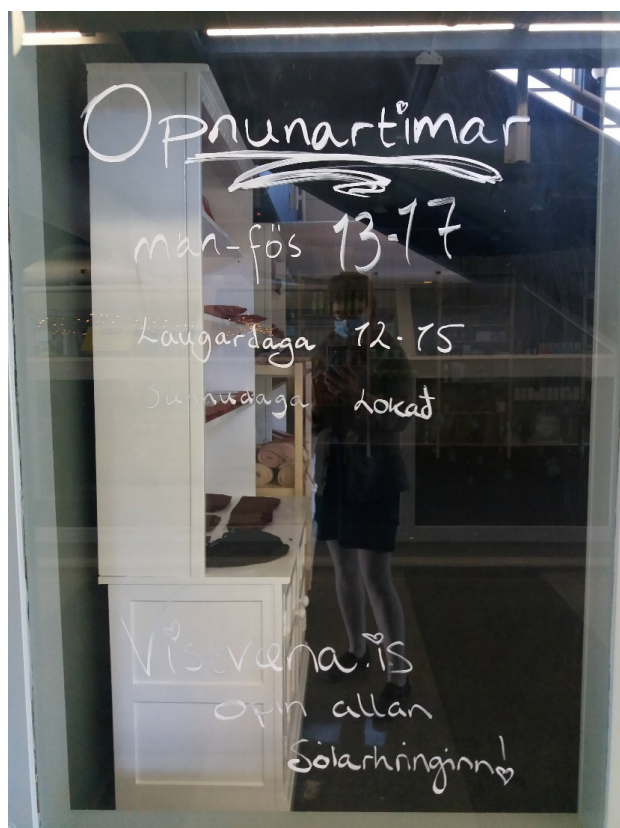 Opnunartimar
mán-fös 13-17
Laugardaga 12-15
Sunnudaga Lokað
Vistvæna.is
opin allan
Sólarhringinn!